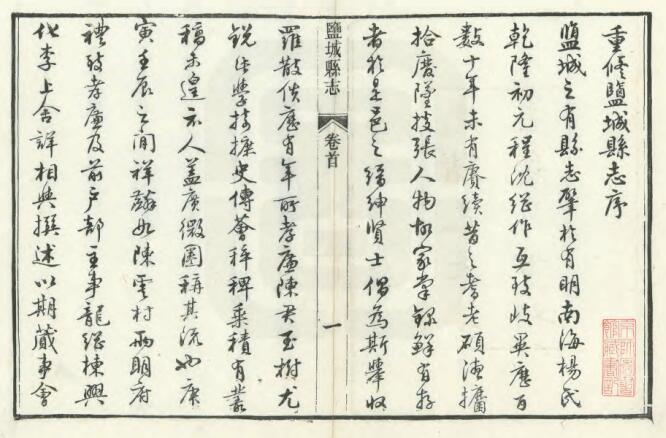 重修鹽城縣志序
鹽城之有縣志肇於有明南海楊氏
乾隆初元程沈繼作互玫歧異歷百
數十年未有賡續昔之耆老碩德攟
拾廢墜披張人物故家掌錄鮮有存
者於是邑之搢紳賢士倡為斯舉收
鹽城縣志
卷首
一
羅散佚歷有年所孝廉陳君玉樹尤
銳此學捃摭史傳薈稡稗乘積有叢
稿未遑示人蓋廣微圈稱其流也庚
寅壬辰之間祥 如陳雲村兩明府
禮致孝廉及前戶部主事龍繼棟興
化李上舍詳相與撰述以期蕆事會